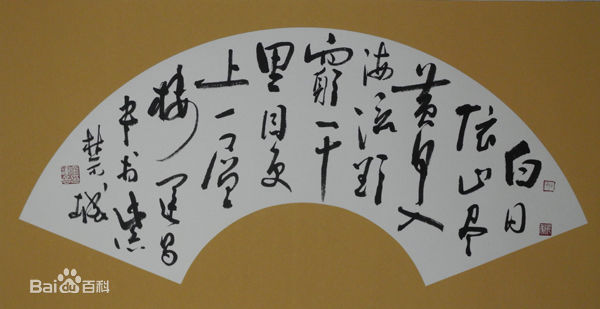 白日
依山尽
黄河入
海流欲
窮千
里目更
上一层
楼
Bai百科